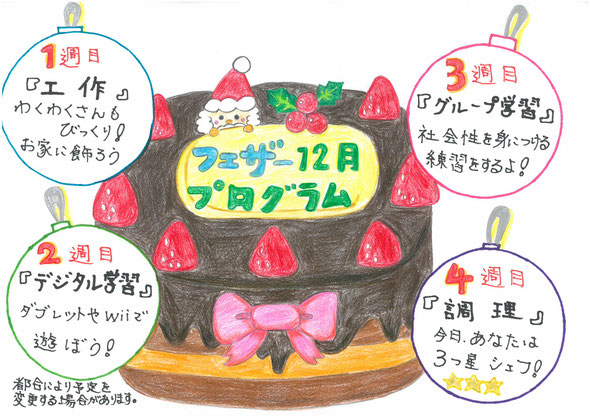 フェザー12月
プログラム
1週目
『工作』
わくわくさんも
びっくり!
お家に飾ろう
2週目
『デジタル学習』
タブレットやWiiで
遊ぼう!
3週目
『グループ学習』
社会性を身につける
練習をするよ!
4週目
『調理』
今日、あなたは
3つ星シェフ!
都合により予定を
変更する場合があります。